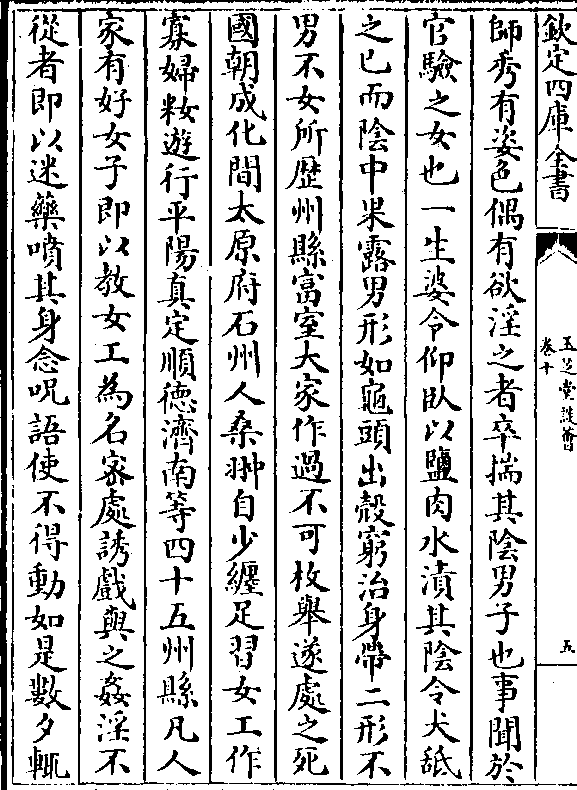 欽定四庫全書
玉芝堂談薈
卷十
五
師秀有姿色偶有欲淫之者卒揣其陰男子也事聞於
官驗之女也一生婆令仰臥以鹽肉水漬其陰令犬舐
之已而陰中果露男形如龜頭出殼窮治身帶二形不
男不女所歴州縣富室大家作過不可枚舉遂處之死
國朝成化間太原府石州人桑翀自少纏足習女工作
寡婦粧遊行平陽真定順德濟南等四十五州縣凡人
家有好女子即以教女工為名密處誘戲與之姦淫不
從者即以迷藥噴其身念呪語使不得動如是數夕輒